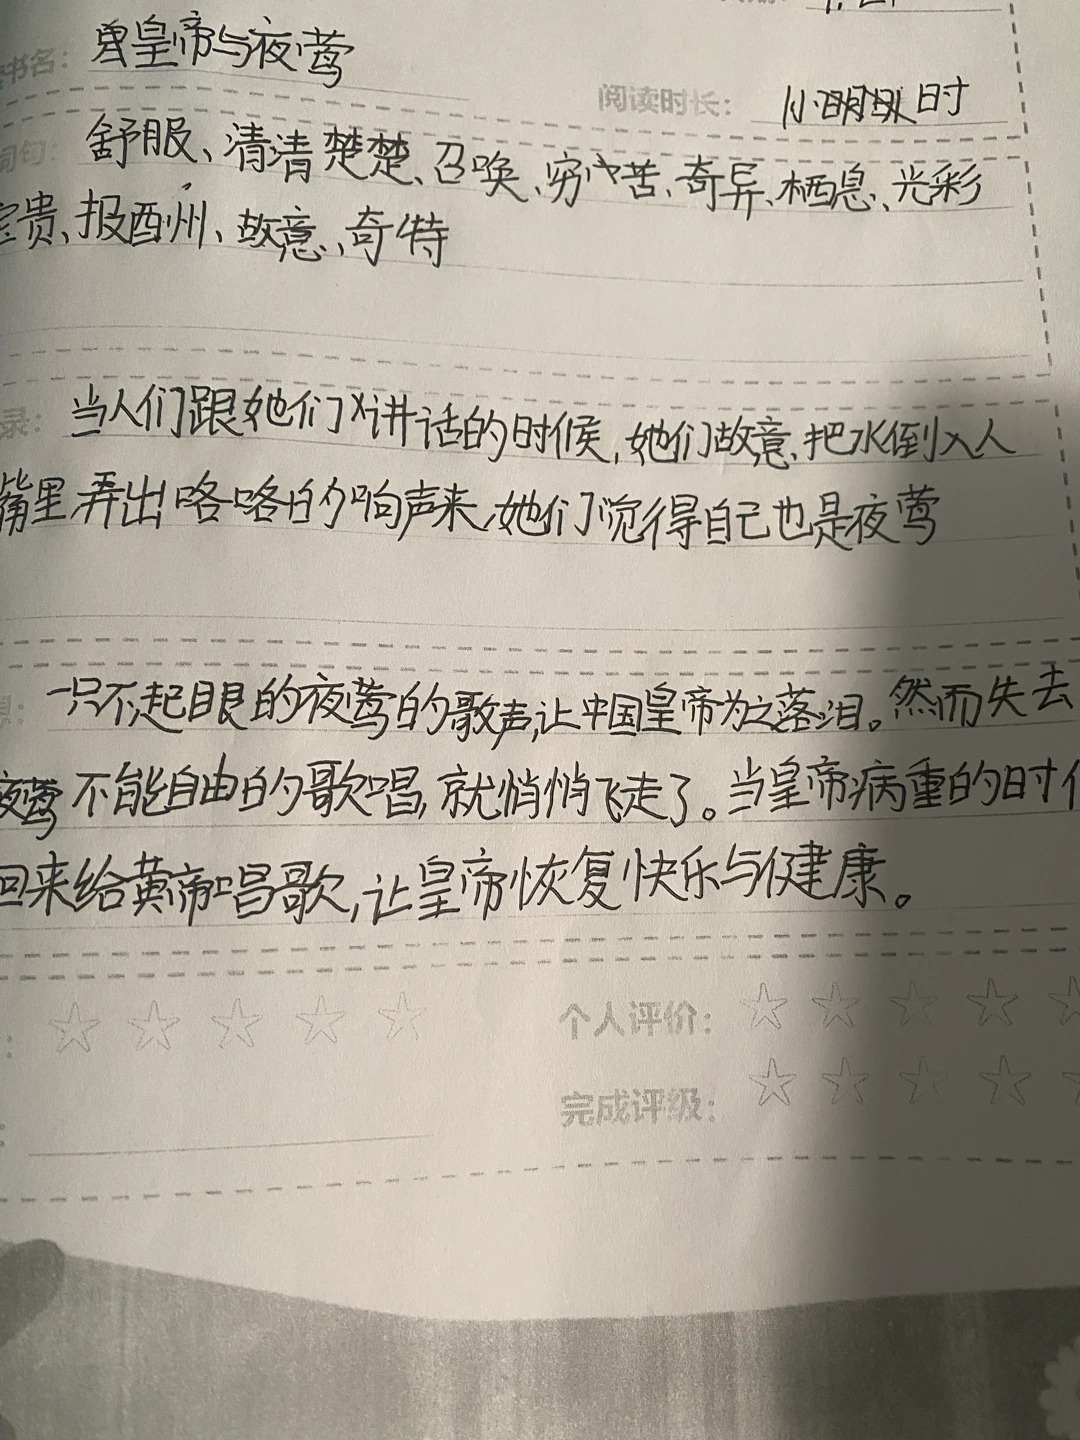 书名：皇帝与夜莺
阅读时长：
时
舒服、清清楚楚、召唤、穷苦、奇异、栖息、光彩
宝贵、报酬、故意、奇特
录：当人们跟她们讲话的时候，她们故意、把水倒入人
嘴里弄出咯咯的响声来，她们觉得自己也是夜莺
一只不起眼的夜莺的歌声，让中国皇帝为之落泪。然而失去
夜莺不能自由的歌唱，就悄悄飞走了。当皇帝病重的时
回来给黄帝唱歌，让皇帝恢复快乐与健康。
个人评价：
完成评级：